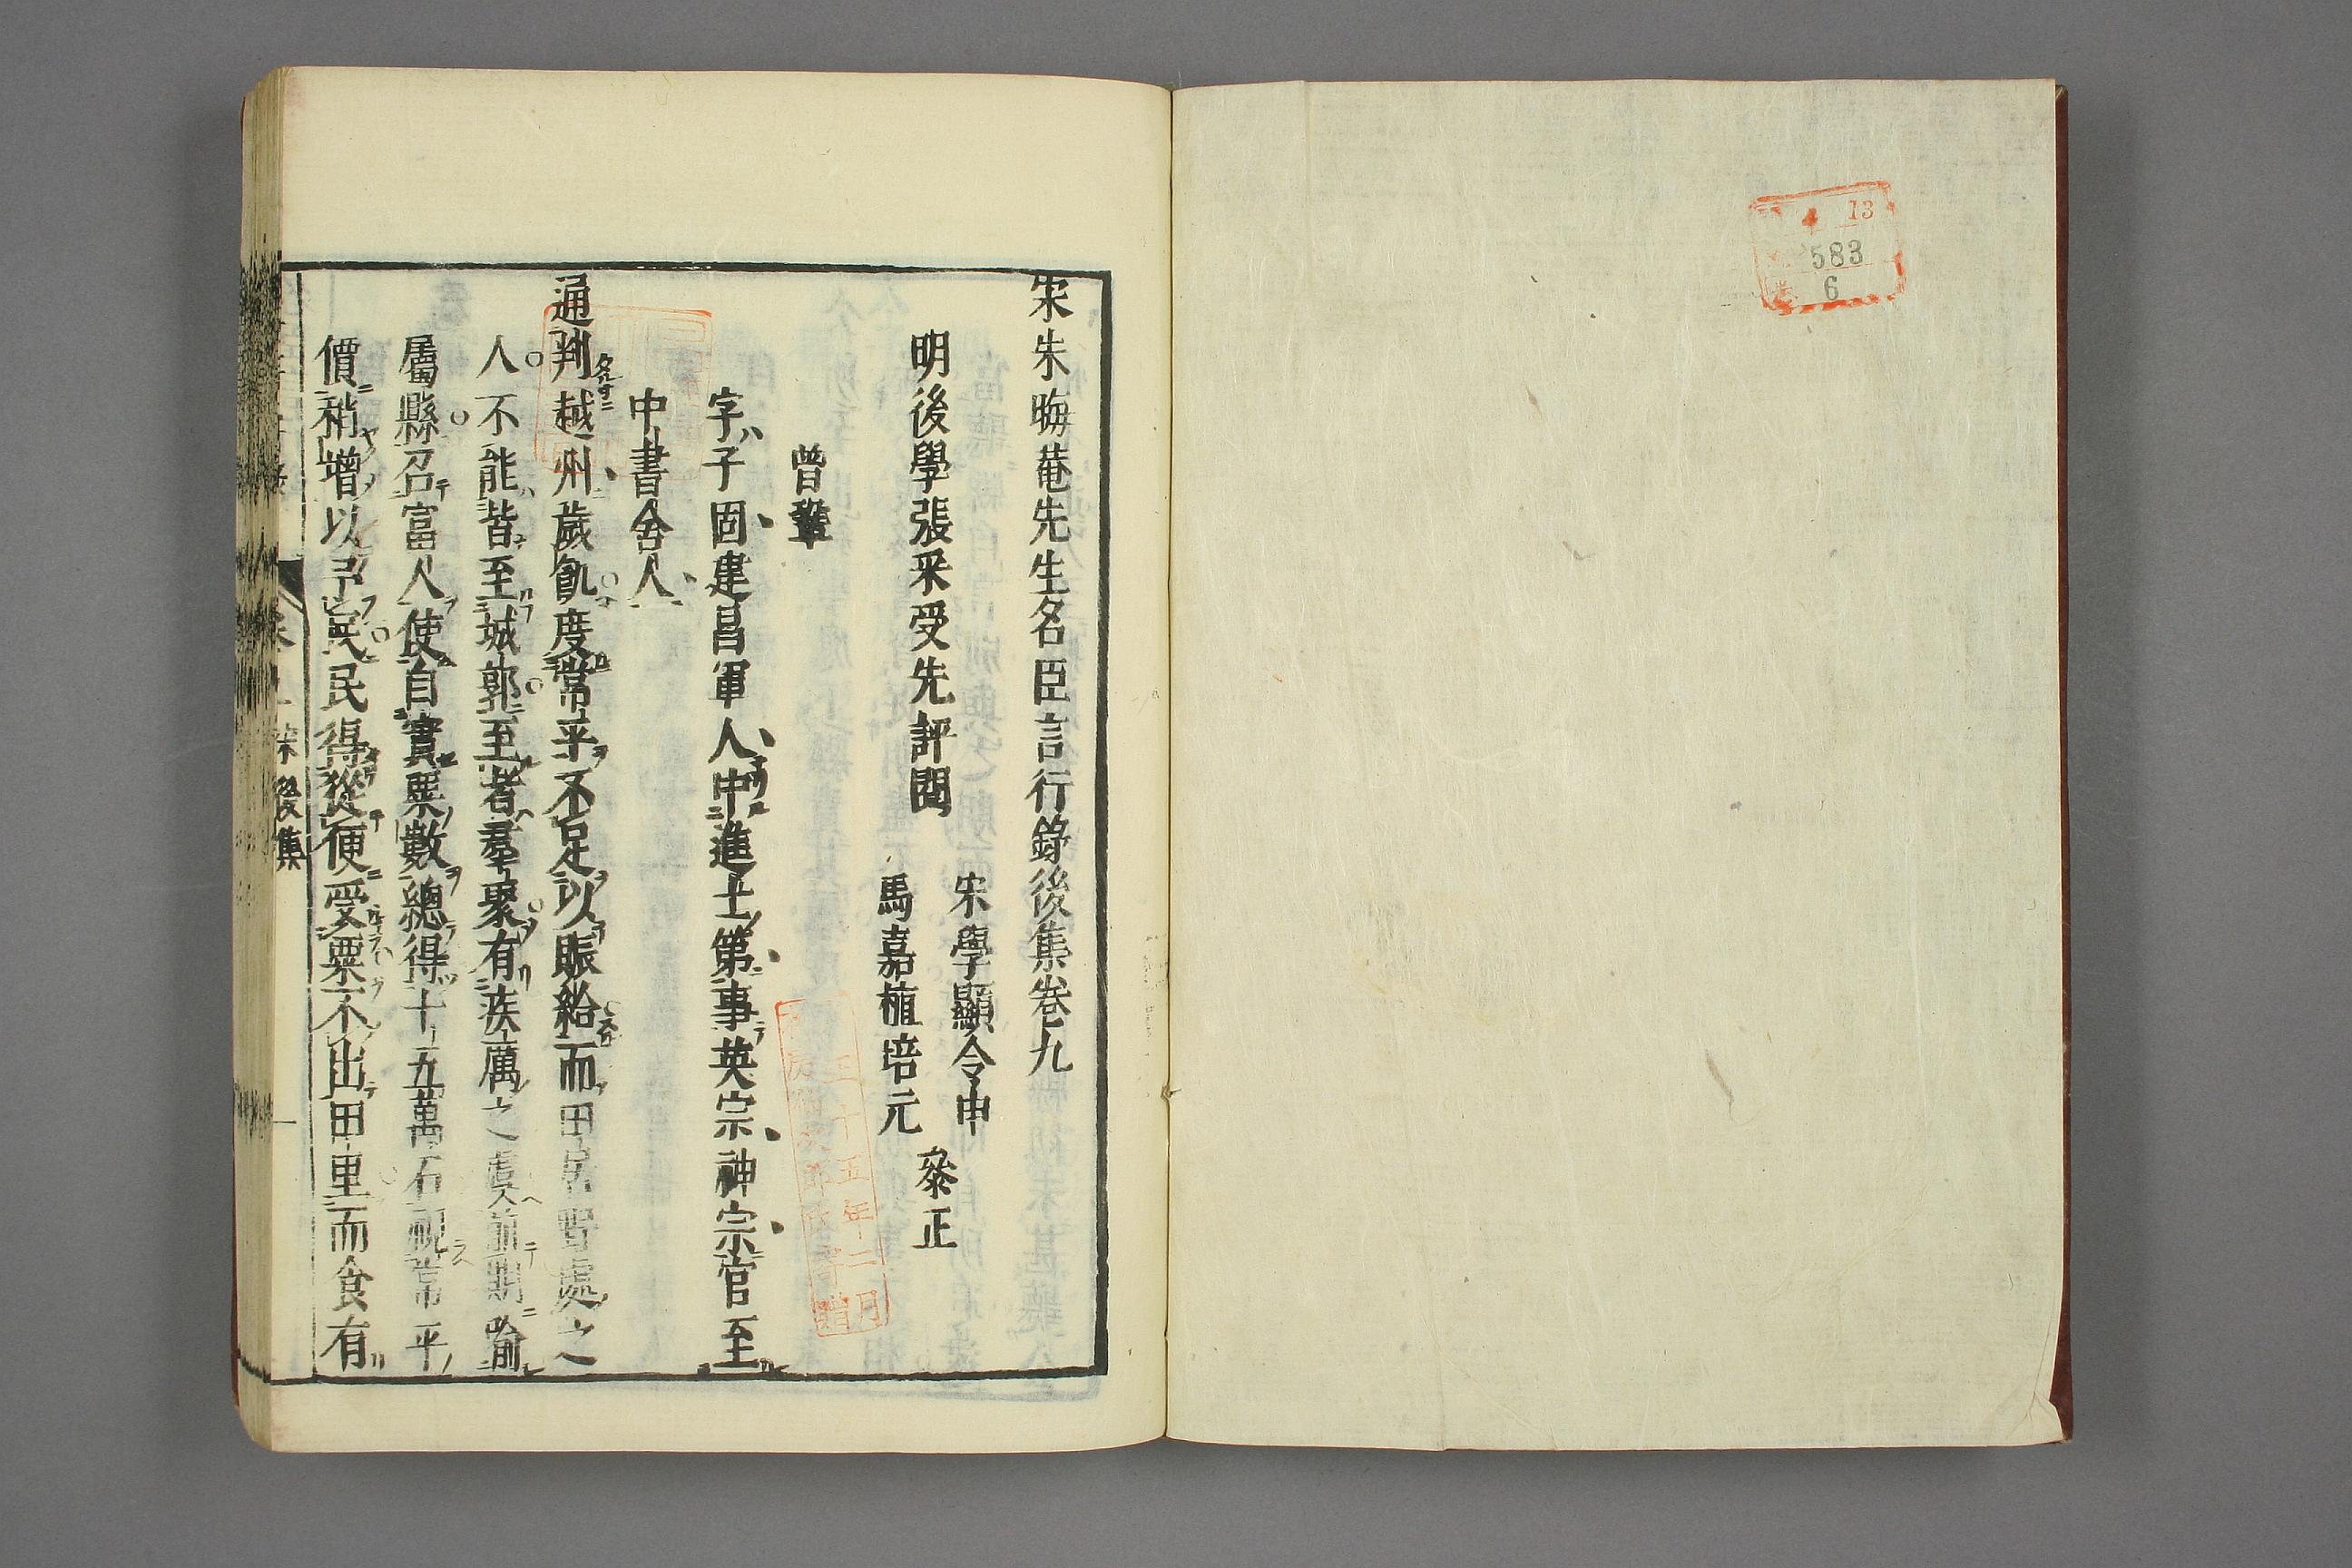 宋朱晦菴先生名臣言行錄後集卷九
明後學張采受先評閱
宋學顯令申
馬嘉植培元
叅正
曾鞏
字子固建昌軍人中進士第事英宗神宗官至
中書舍人
通判越州歲飢度常平不足以賑給而田居野處之
人不能皆至城郭至者羣聚有疾厲之虞前期喻
屬縣召富人使自實粟數總得十五萬石視常平
價稍增以予民民得從便受粟不出田里而食有
後集
13
583
6